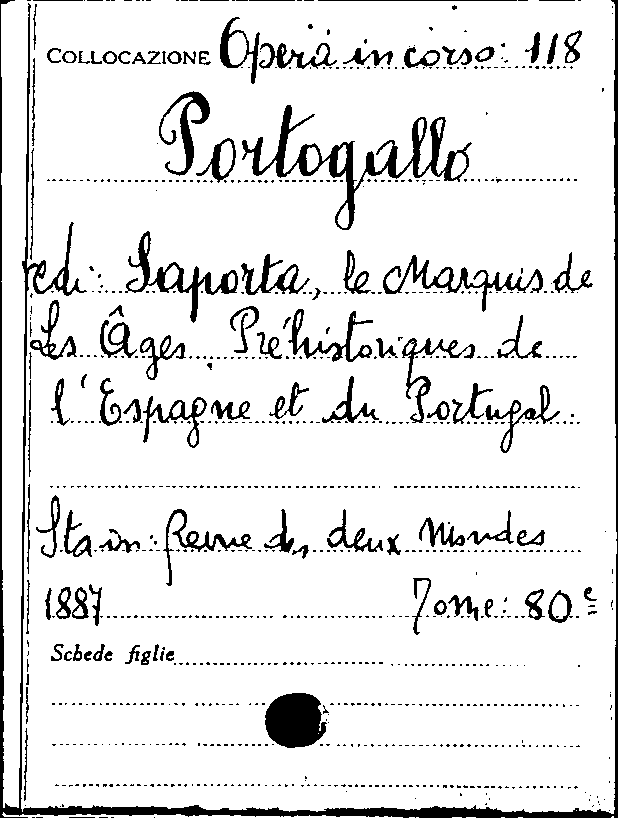 COLLOCAZIONE Opera in corso: 118
Portogallo
Vedi: Saporta, le Marquis de
Les Âges Préhistoriques de
l'Espagne et du Portugal.
Sta in: Revue des deux Mondes
1887 Tome: 80e
Schede figlie